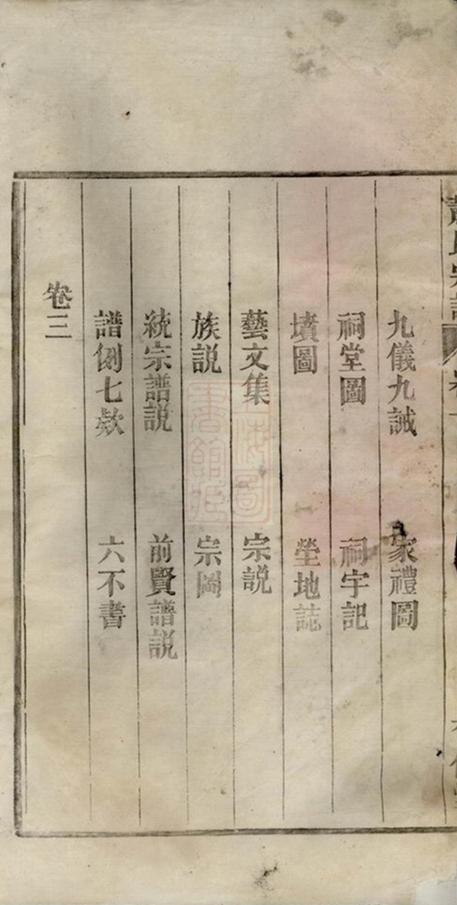 九儀九誡　家禮圖
祠堂圖　祠宇記
墳圖　塋地誌
藝文集　宗説
族説　宗圖
統宗譜説　前賢譜説
譜例七欵　六不書
卷三